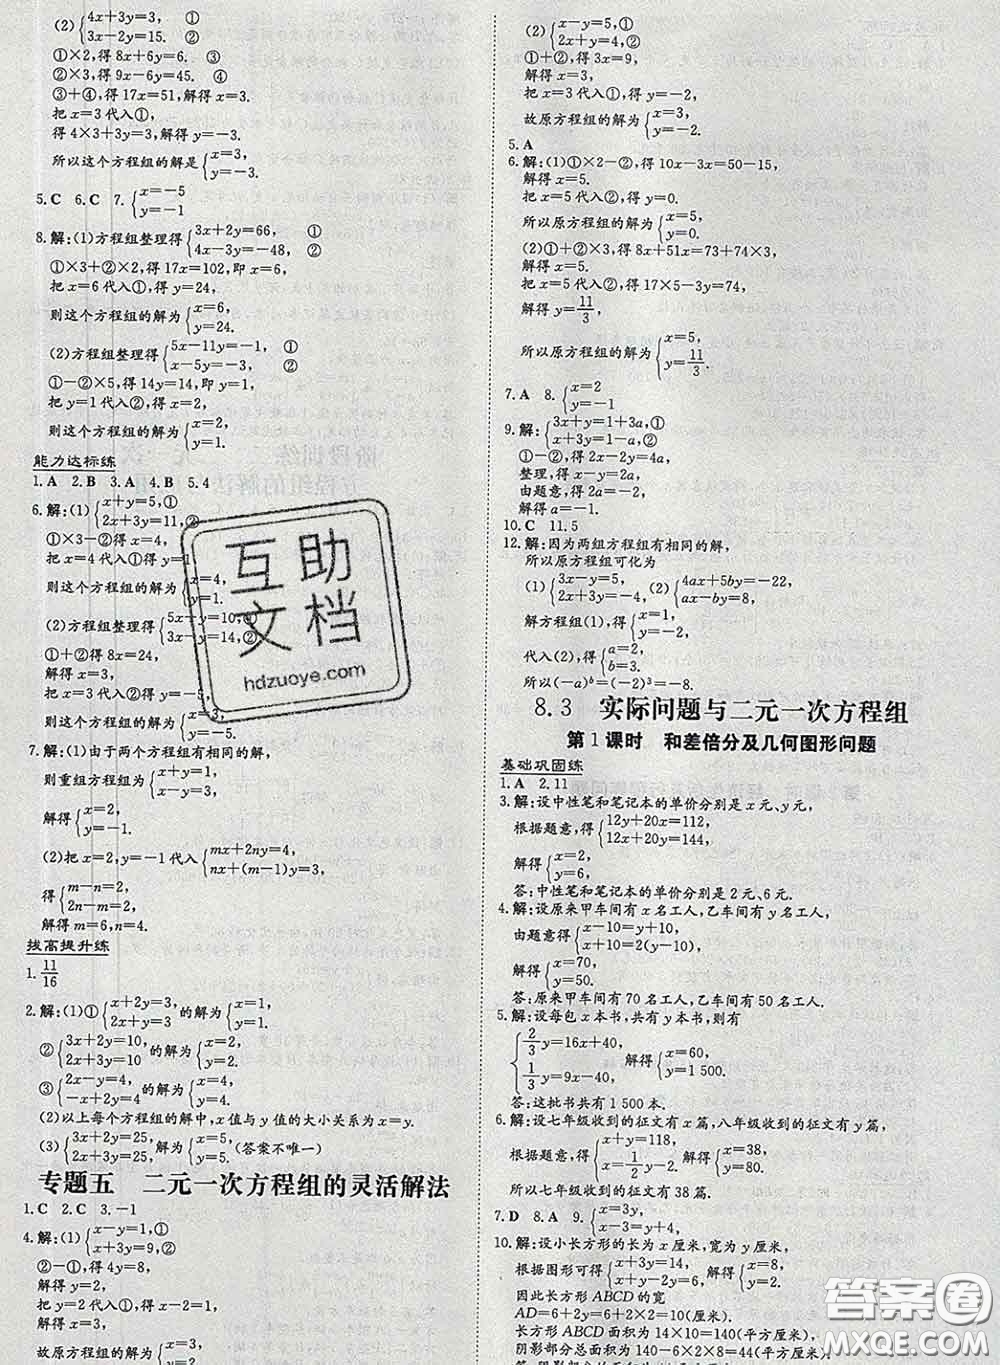 (2){4x+3y=3, ①
3x-2y=15. ②
①×2,得 8x+6y=6. ③
②×3,得 9x-6y=45. ④
③+④,得 17x=51,解得 x=3.
把 x=3 代入①,
得 4×3+3y=3,解得 y=-3.
所以这个方程组的解是{x=3,
y=-3.
5.C 6.C 7.{x=-5
y=-1
8.解:(1)方程组整理得{3x+2y=66, ①
4x-3y=-48, ②
①×3+②×2,得 17x=102,即 x=6,
把 x=6 代入①,得 y=24,
则这个方程组的解为{x=6,
y=24.
(2)方程组整理得{5x-11y=-1, ①
x-5y=-3, ②
①-②×5,得 14y=14,即 y=1,
把 y=1 代入②,得 x=2,
则这个方程组的解为{x=2,
y=1.
能力达标练
1.A 2.B 3.A 4.B 5.4
6.解:(1){x+y=5,①
2x+3y=11,②
①×3-②,得 x=4,
把 x=4 代入①得 y=1,
则这个方程组的解为{x=4,
y=1.
(2)方程组整理得{5x+y=10,①
3x-y=14,②
①+②得 8x=24,
解得 x=3,
把 x=3 代入①得 y=-5,
则这个方程组的解为{x=3,
y=-5.
7.解:(1)由于两个方程组有相同的解,
则重组方程组为{x+y=1,
x-y=3,
解得{x=2,
y=-1.
(2)把 x=2,y=-1 代入{mx+2ny=4,
nx+(m-1)y=3,
得{m-n=2,
2n-m=2,
解得 m=6,n=4.
拔高提升练
1. 11/16
2.解:(1)①{x+2y=3,
2x+y=3 的解为{x=1,
y=1.
②{3x+2y=10,
2x+3y=10 的解为{x=2,
y=2.
③{2x-y=4,
-x+2y=4 的解为{x=4,
y=4.
(2)以上每个方程组的解中,x 值与 y 值的大小关系为 x=y.
(3){3x+2y=25,
2x+3y=25,解为{x=5,
y=5.(答案不唯一)
专题五 二元一次方程组的灵活解法
1.C 2.C 3.-1
4.解:(1){x-y=1,①
x+3y=9,②
②-①,得 4y=8,
解得 y=2,
把 y=2 代入①,得 x-2=1,
解得 x=3,
故原方程组的解为{x=3,
y=2.
(2){x-y=5,①
2x+y=4,②
①+②,得 3x=9,
解得 x=3,
把 x=3 代入①,得 3-y=5,
解得 y=-2.
故原方程组的解为{x=3,
y=-2.
5.A
6.解:(1)①×2-②,得 10x-3x=50-15,
解得 x=5.
把 x=5 代入②,得 y=0.
所以原方程组的解为{x=5,
y=0.
(2)①+②×3,得 8x+51x=73+74×3,
解得 x=5.
把 x=5 代入②,得 17×5-3y=74,
解得 y=11/3,
所以原方程组的解为{x=5,
y=11/3.
7.A 8.{x=2
y=-1
9.解:{3x+y=1+3a,①
x+3y=1-a,②
①-②,得 2x-2y=4a,
整理,得 x-y=2a,
由题意,得 2a=-2,
解得 a=-1.
10.C 11.5
12.解:因为两组方程组有相同的解,
所以原方程组可化为
(1){3x-y=5,
2x+3y=-4, (2){4ax+5by=-22,
ax-by=8,
解方程组(1),得{x=1,
y=-2,
代入(2),得{a=2,
b=3.
所以(-a)ᵇ=(-2)³=-8.
8.3 实际问题与二元一次方程组
第 1 课时 和差倍分及几何图形问题
基础巩固练
1.A 2.11
3.解:设中性笔和笔记本的单价分别是 x 元、y元,
根据题意,得{12y+20x=112,
12x+20y=144,
解得{x=2,
y=6.
答:中性笔和笔记本的单价分别是 2 元、6 元.
4.解:设原来甲车间有 x 名工人,乙车间有 y 名工人,
由题意得{x-10=y+10,
x+10=2(y-10),
解得{x=70,
y=50.
答:原来甲车间有 70 名工人,乙车间有 50 名工人.
5.解:设每包 x 本书,共有 y 本书,则有
{2/3y=16x+40,
1/3y=9x-40, 解得{x=60,
y=1 500.
答:这批书共有 1 500 本.
6.解:设七年级收到的征文有 x 篇,八年级收到的征文有 y 篇,
根据题意,得{x+y=118,
x=1/2y-2, 解得{x=38,
y=80.
所以七年级收到的征文有 38 篇.
7.D 8.A 9.{x=3y,
x-3=y+4,
10.解:设小长方形的长为 x 厘米,宽为 y 厘米,
根据图形可得{x+3y=14,
x+y-2y=6, 解得{x=8,
y=2.
因此长方形 ABCD 的宽
AD=6+2y=6+2×2=10(厘米).
长方形 ABCD 面积为 14×10=140(平方厘米),
阴影部分总面积为 140-6×2×8=44(平方厘米).
互助
文档
hdzuoye.com
答案圈
MXQE.COM